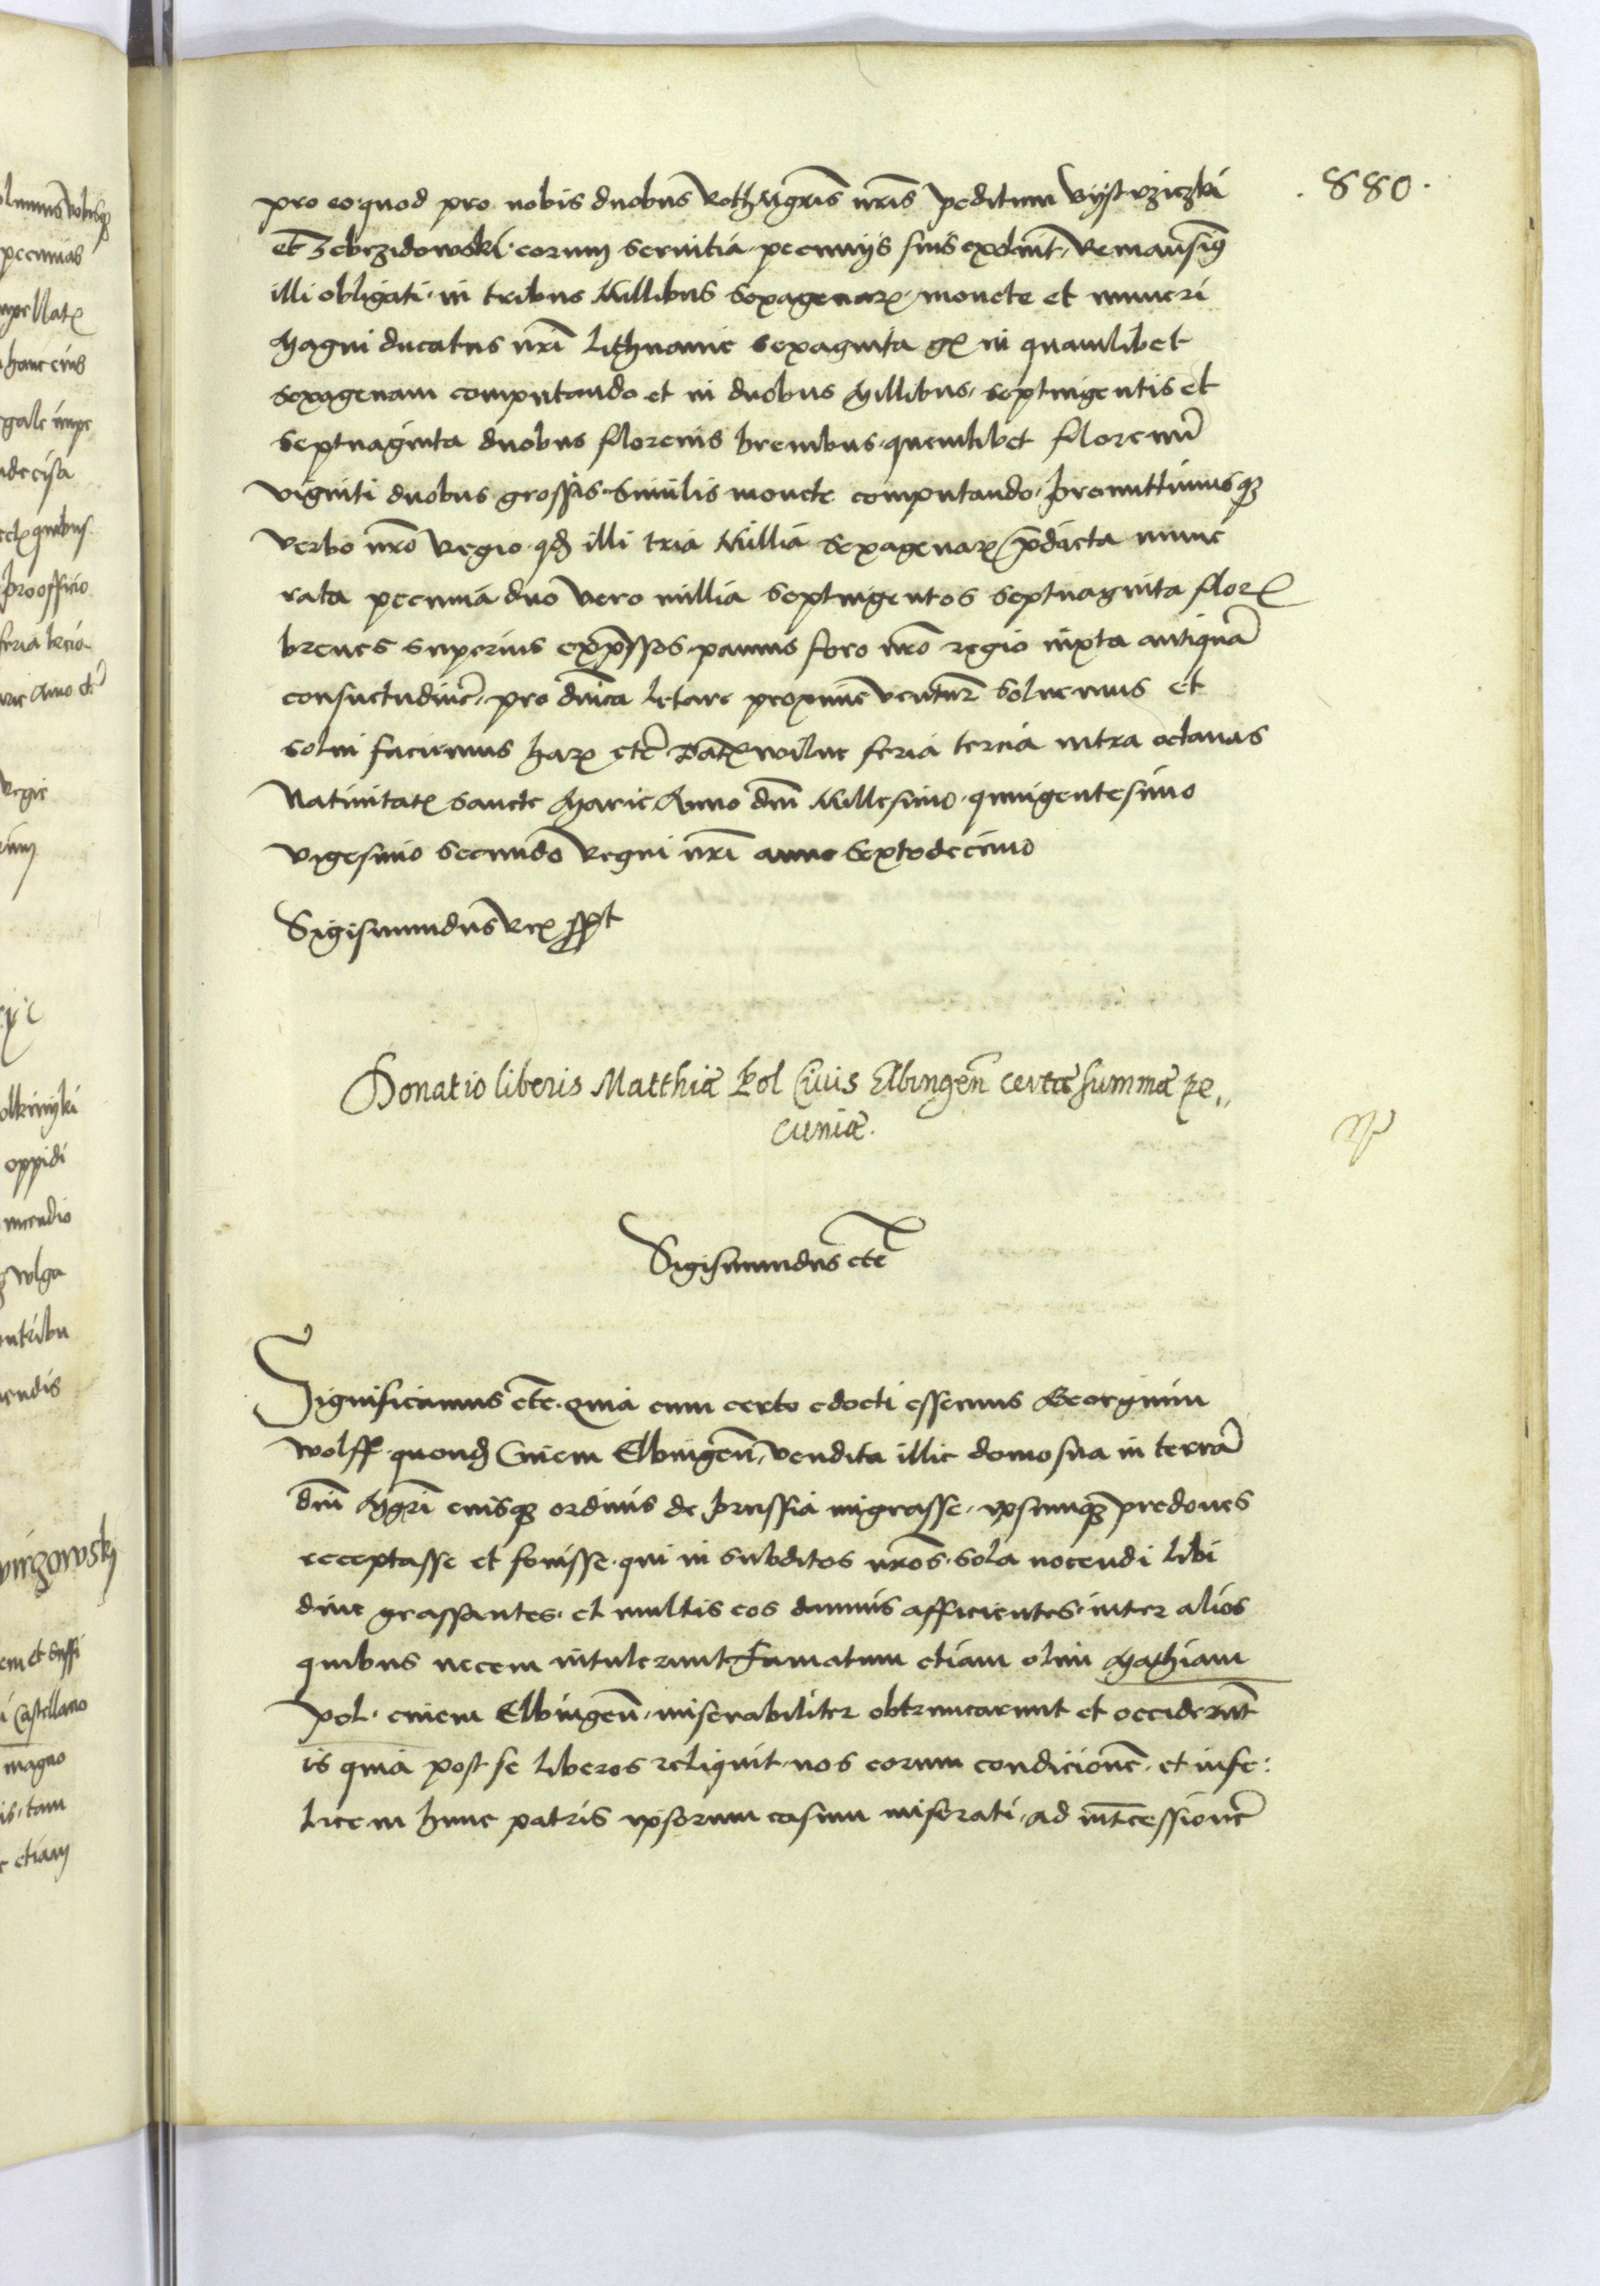 .880.
pro eo quod pro nobis duobus Rothmgris nris peditum Bystrziczki
et Zebrzidowski eorum servitia pecunijs suis exolvit, Remansimus
illi obligati in tribus Millibus Sexagenar monete et numeri
Magni ducatus nri Lithuanie sexaginta gr in quamlibet
sexagenam computando et in duobus Millibus septingentis et
septuaginta duobus florenis brevibus quemlibet florenu
viginti duobus grossis similis monete computando, promittimusq
verbo nro Regio qd illi tria Millia Sexagenar predicta numerata
pecunia duo vero millia septingentos septuaginta flor
breves superius expssos pannis foro nro regio iuxta antiqua
consuetudine pro dnica letare proxime ventur solvemus et
solvi faciemus har etc Dat wilne feria tercia intra octavas
Nativitat sancte Marie Anno dni Millesimo quingentesimo
vigesimo secundo Regni nri anno Sextodecimo
Sigismundus Rex sspt
Donatio liberis Matthiæ Pol Civis Elbingen certæ summæ pe,,
cuniæ.
Sigismundus etc
Significamus etc. quia cum certo edocti essemus Georgium
wolff quond Civem Elbingen, vendita illic domo sua in terra
dni Mgri eiusq ordinis de prussia migrasse, ipsumq predones
receptasse et fovisse qui in subditos nros sola nocendi libi
dine grassantes et multis eos damnis afficientes inter alios
quibus necem intulerunt famatum etiam olim Mathiam
Pol civem Elbingen miserabiliter obtruncarunt et occiderut
is quia post se liberos reliquit nos eorum condicione et infe:
licem hunc patris ipsorum casum miserati ad intcessione